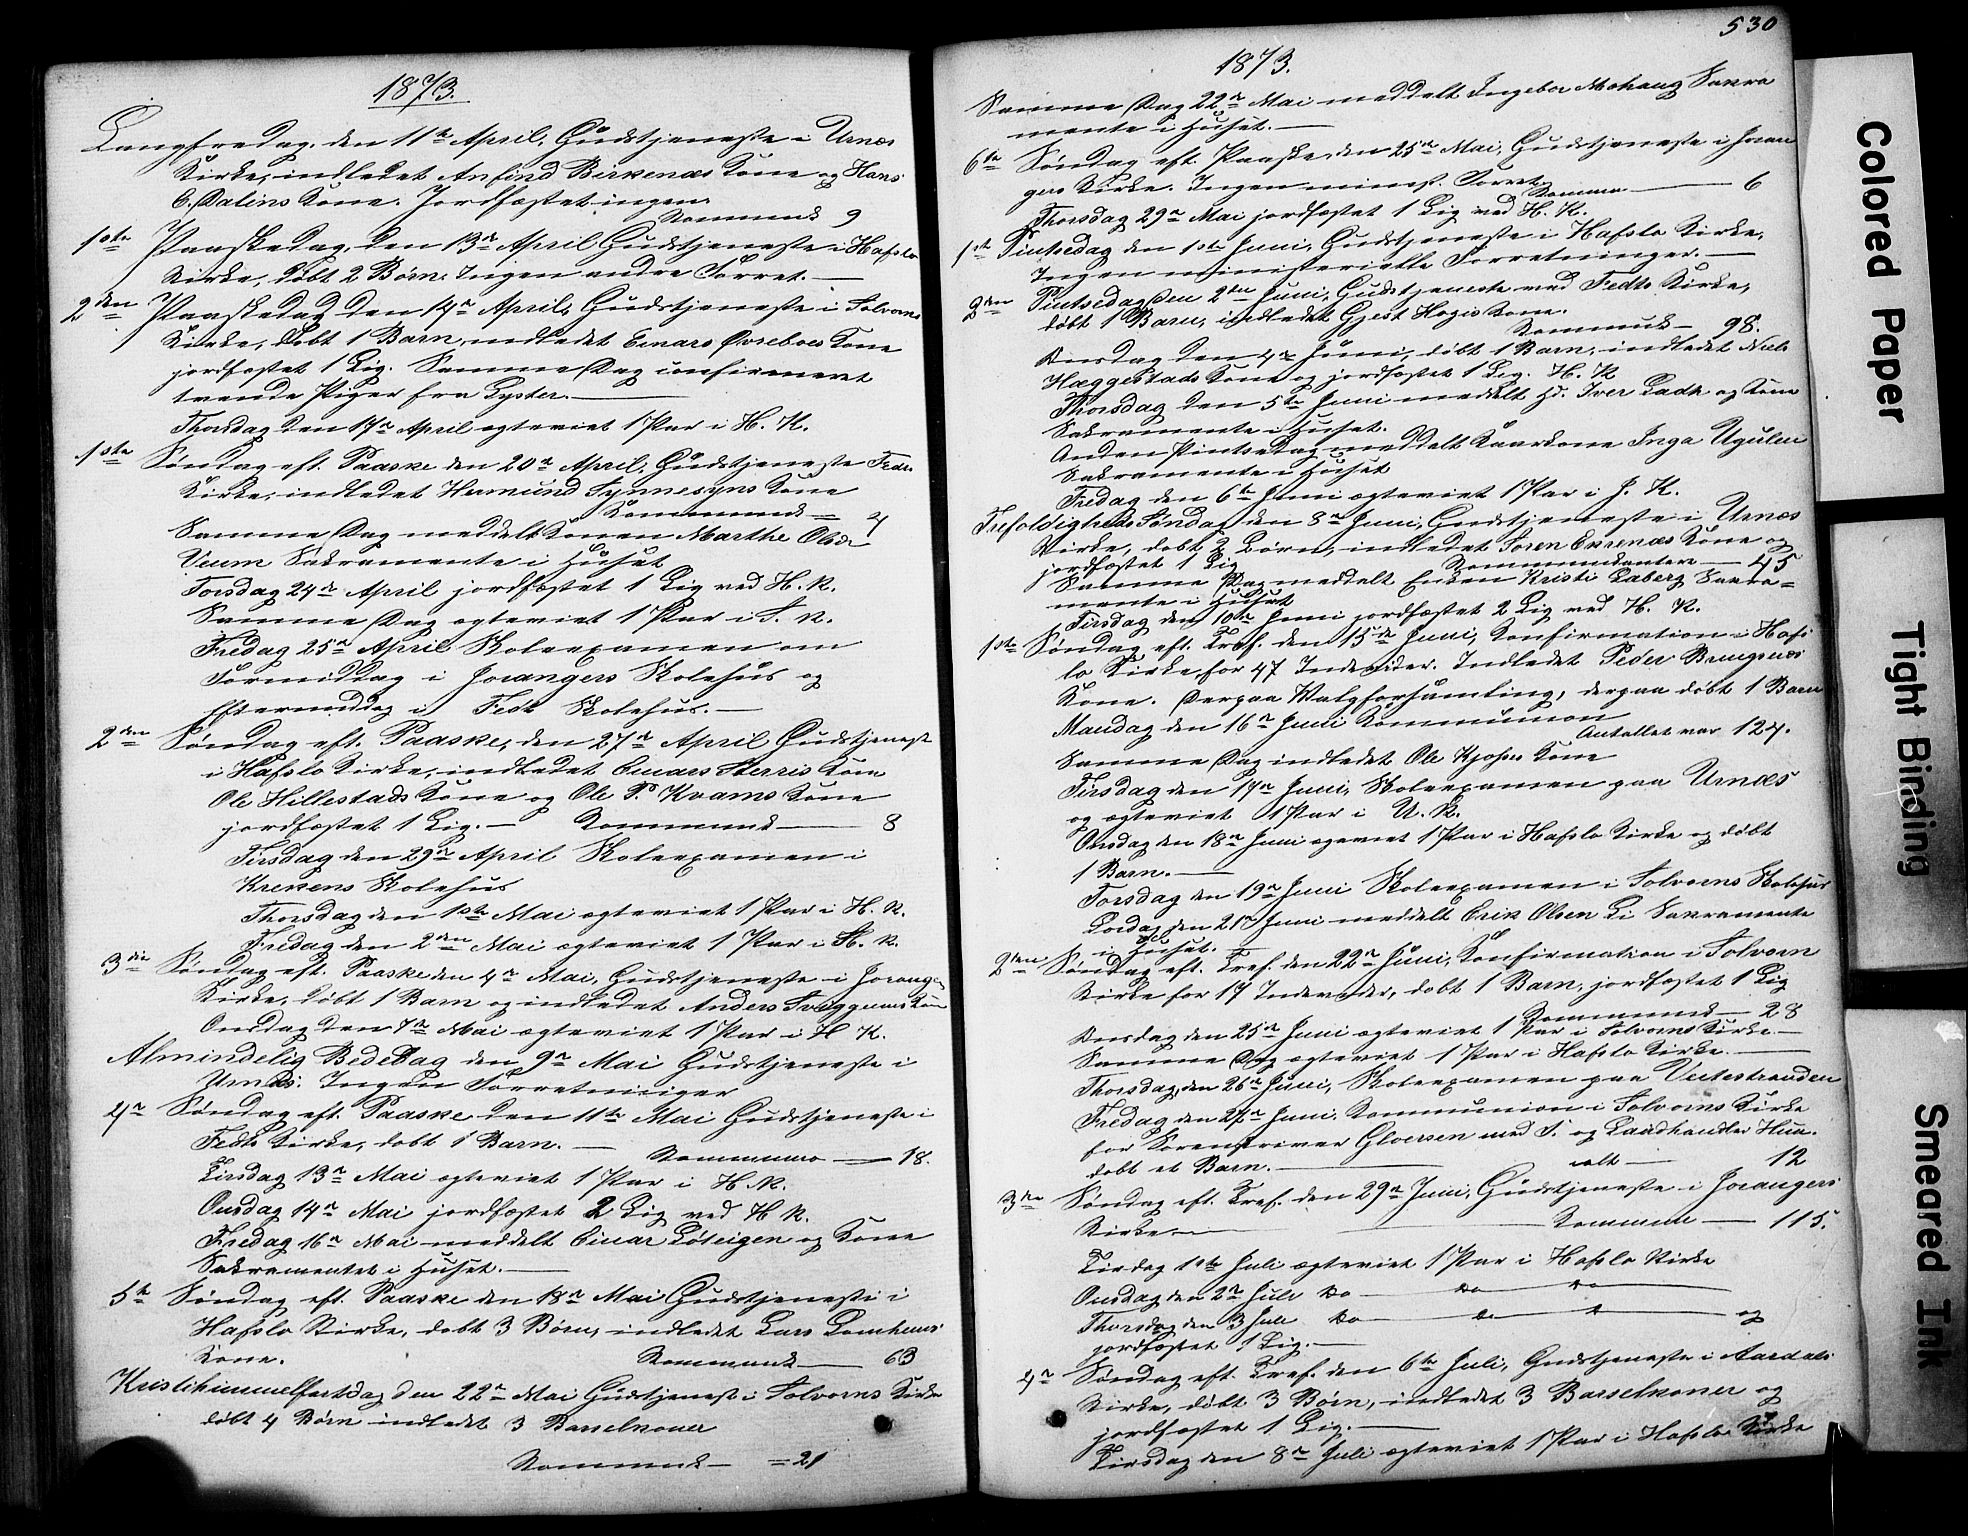 1873.
Langfredag den 11te April, Gudstjeneste i Urnæs
Kirke, indledet Anfind Birkenæs Kone og Hans
C. Dalens Kone. Jordfæstet ingen.
Kommunik 9
1ste Paaskedag, den 13de April Gudstjeneste i Hafslo
Kirke, døbt 2 Børn. Ingen andre Forret.
2den Paaskedag den 14de April, Gudstjeneste i Solvorns
Kirke, døbt 1 Barn, indledet Einars Øvreboes Kone
jordfæstet 1 Lig. Samme Dag confirmeret
trende Piger fra Lyster.
Thorsdag den 17de April egteviet 1 Par i H. K.
1ste Søndag eft. Paaske den 20de April, Gudstjeneste Fedts
Kirke, indledet Hermund Synnesyns Kone
Kommunik 4
Samme Dag meddelt Konen Marthe Olsdr
Veum Sakramente i Huset
Torsdag 24de April jordfæstet 1 Lig ved H. K.
Samme Dag egteviet 1 Par i S. K.
Fredag 25de April Skoleexamen om
Formiddag i Joranger Skolehus og
Eftermiddag i Fedt Skolehus.
2den Søndag eft. Paaske, den 27de April Gudstjeneste
i Hafslo Kirke, indledet Einars Sterris Kone
Ole Hillestads Kone og Ole P. Kvams Kone
jordfæstet 1 Lig. Kommunik 8
Tirsdag den 29de April Skoleexamen i
Krekens Skolehus
Thorsdag den 1ste Mai egteviet 1 Par i H. K.
Fredag den 2den Mai egteviet 1 Par i H. K.
3die Søndag eft. Paaske den 4de Mai, Gudstjeneste i Joranger
Kirke, døbt 1 Barn og indledet Anders Svæggums Kone
Onsdag den 7de Mai egteviet 1 Par i H. K.
Almindelig BedeDag den 9de Mai Gudstjeneste i
Urnæs. Ingen Forretninger
4de Søndag eft. Paaske den 11te Mai Gudstjeneste i
Fedts Kirke, døbt 1 Barn.
Kommunik 18.
Tirsdag 13de Mai egteviet 1 Par i H. K.
Onsdag 14de Mai jordfæstet 2 Lig ved H. K.
Fredag 16de Mai meddelt Einar Løteigen og Kone
Sakramentet i Huset.
5te Søndag eft. Paaske den 18de Mai Gudstjeneste i
Hafslo Kirke, døbt 3 Børn, indledet Lars Lomheims
Kone. Kommunik 63
Kristihimmelfartsdag den 22de Mai Gudstjeneste i Solvorns Kirke
døbt 4 Børn indledet 3 Barselkoner
Kommunik = 21
530
1873.
Samme Dag 22de Mai meddelt Ingebor Mohaug Sakra
mente i Huset.
6te Søndag eft. Paaske den 25de Mai, Gudstjeneste i Joran
gers Kirke. Ingen minist. Forret.
Kommun 6
Thorsdag 29de Mai jordfæstet 1 Lig ved H. K.
1ste Pintsedag den 1ste Juni, Gudstjeneste i Hafslo Kirke,
Ingen ministerielle Forretninger.
2den Pintsedag den 2den Juni, Gudstjeneste ved Fedts Kirke,
døbt 1 Barn, indledet Gjest Hegis Kone.
Kommunik 98.
Onsdag den 4de Juni, døbt 1 Barn, indledet Niels
Hæggestads Kone og jordfæstet 1 Lig. H. K
Thorsdag den 5te Juni meddelt Iver Ladh og Kone
Sakramente i Huset.
Anden Pintsedag meddelt Kaarkone Inga Ugulen
Sakramente i Huset
Fredag den 6te Juni egteviet 1 Par i J. K.
Trefoldigheds Søndag den 8de Juni, Gudstjeneste i Urnæs
Kirke, døbt 2 Børn, indledet Soren Eikenæs Kone og
jordfæstet 1 Lig Kommunikantere 45
Samme Dag meddelt Enken Kristi Laberg Sakra=
mente i Huset
Tirsdag den 10de Juni jordfæstet 2 Lig ved H. K.
1ste Søndag eft. Tref. den 15de Juni, Konfirmation i Hafs
lo Kirke for 47 Individer. Indledet Peder Bringenæs
Kone. Derpaa Valgforsamling, derpaa døbt 1 Barn
Mandag den 16de Juni Kommunion
Antallet var 124.
Samme Dag indledet Ole Kjoses Kone
Tirsdag den 17de Juni, Skoleexamen paa Urnæs
og egteviet 1 Par i U. K.
Onsdag den 18de Juni egteviet 1 Par i Hafslo Kirke og døbt
1 Barn.
Torsdag den 19de Juni Skoleexamen i Solvorns Skolehus
Lørdag den 21de Juni meddelt Erik Olsen Li Sakramente
i Huset.
2den Søndag eft. Tref. den 22de Juni, Konfirmation i Solvorn
Kirke for 17 Individer, døbt 1 Barn, jordfæstet 1 Lig
Kommunik 28
Onsdag den 25de Juni egteviet 1 Par i Solvorns Kirke
Samme Dag egteviet 1 Par i Hafslo Kirke.
Thorsdag den 26de Juni, Skoleexamen paa Veitestranden
Fredag den 27de Juni, Kommunion i Solvorns Kirke
for Sorenskriver Gloersen med F. og Landhandler Hun.
døbt et Barn. talt 12
3die Søndag eft. Tref. den 29de Juni, Gudstjeneste i Jorangers
Kirke Kommun 115.
Tirsdag 1ste Juli egteviet 1 Par i Hafslo Kirke
Onsdag den 2den Juli do do do
Thorsdag den 3 Juli do do do og
jordfæstet 1 Lig.
4de Søndag eft. Tref. den 6te Juli, Gudstjeneste i Aardals
Kirke, døbt 3 Børn, indledet 3 Barselkoner og
jordfæstet 1 Lig.
Tirsdag den 8de Juli egteviet 1 Par i Hafslo Kirke
Colored Paper
Tight Binding
Smeared Ink